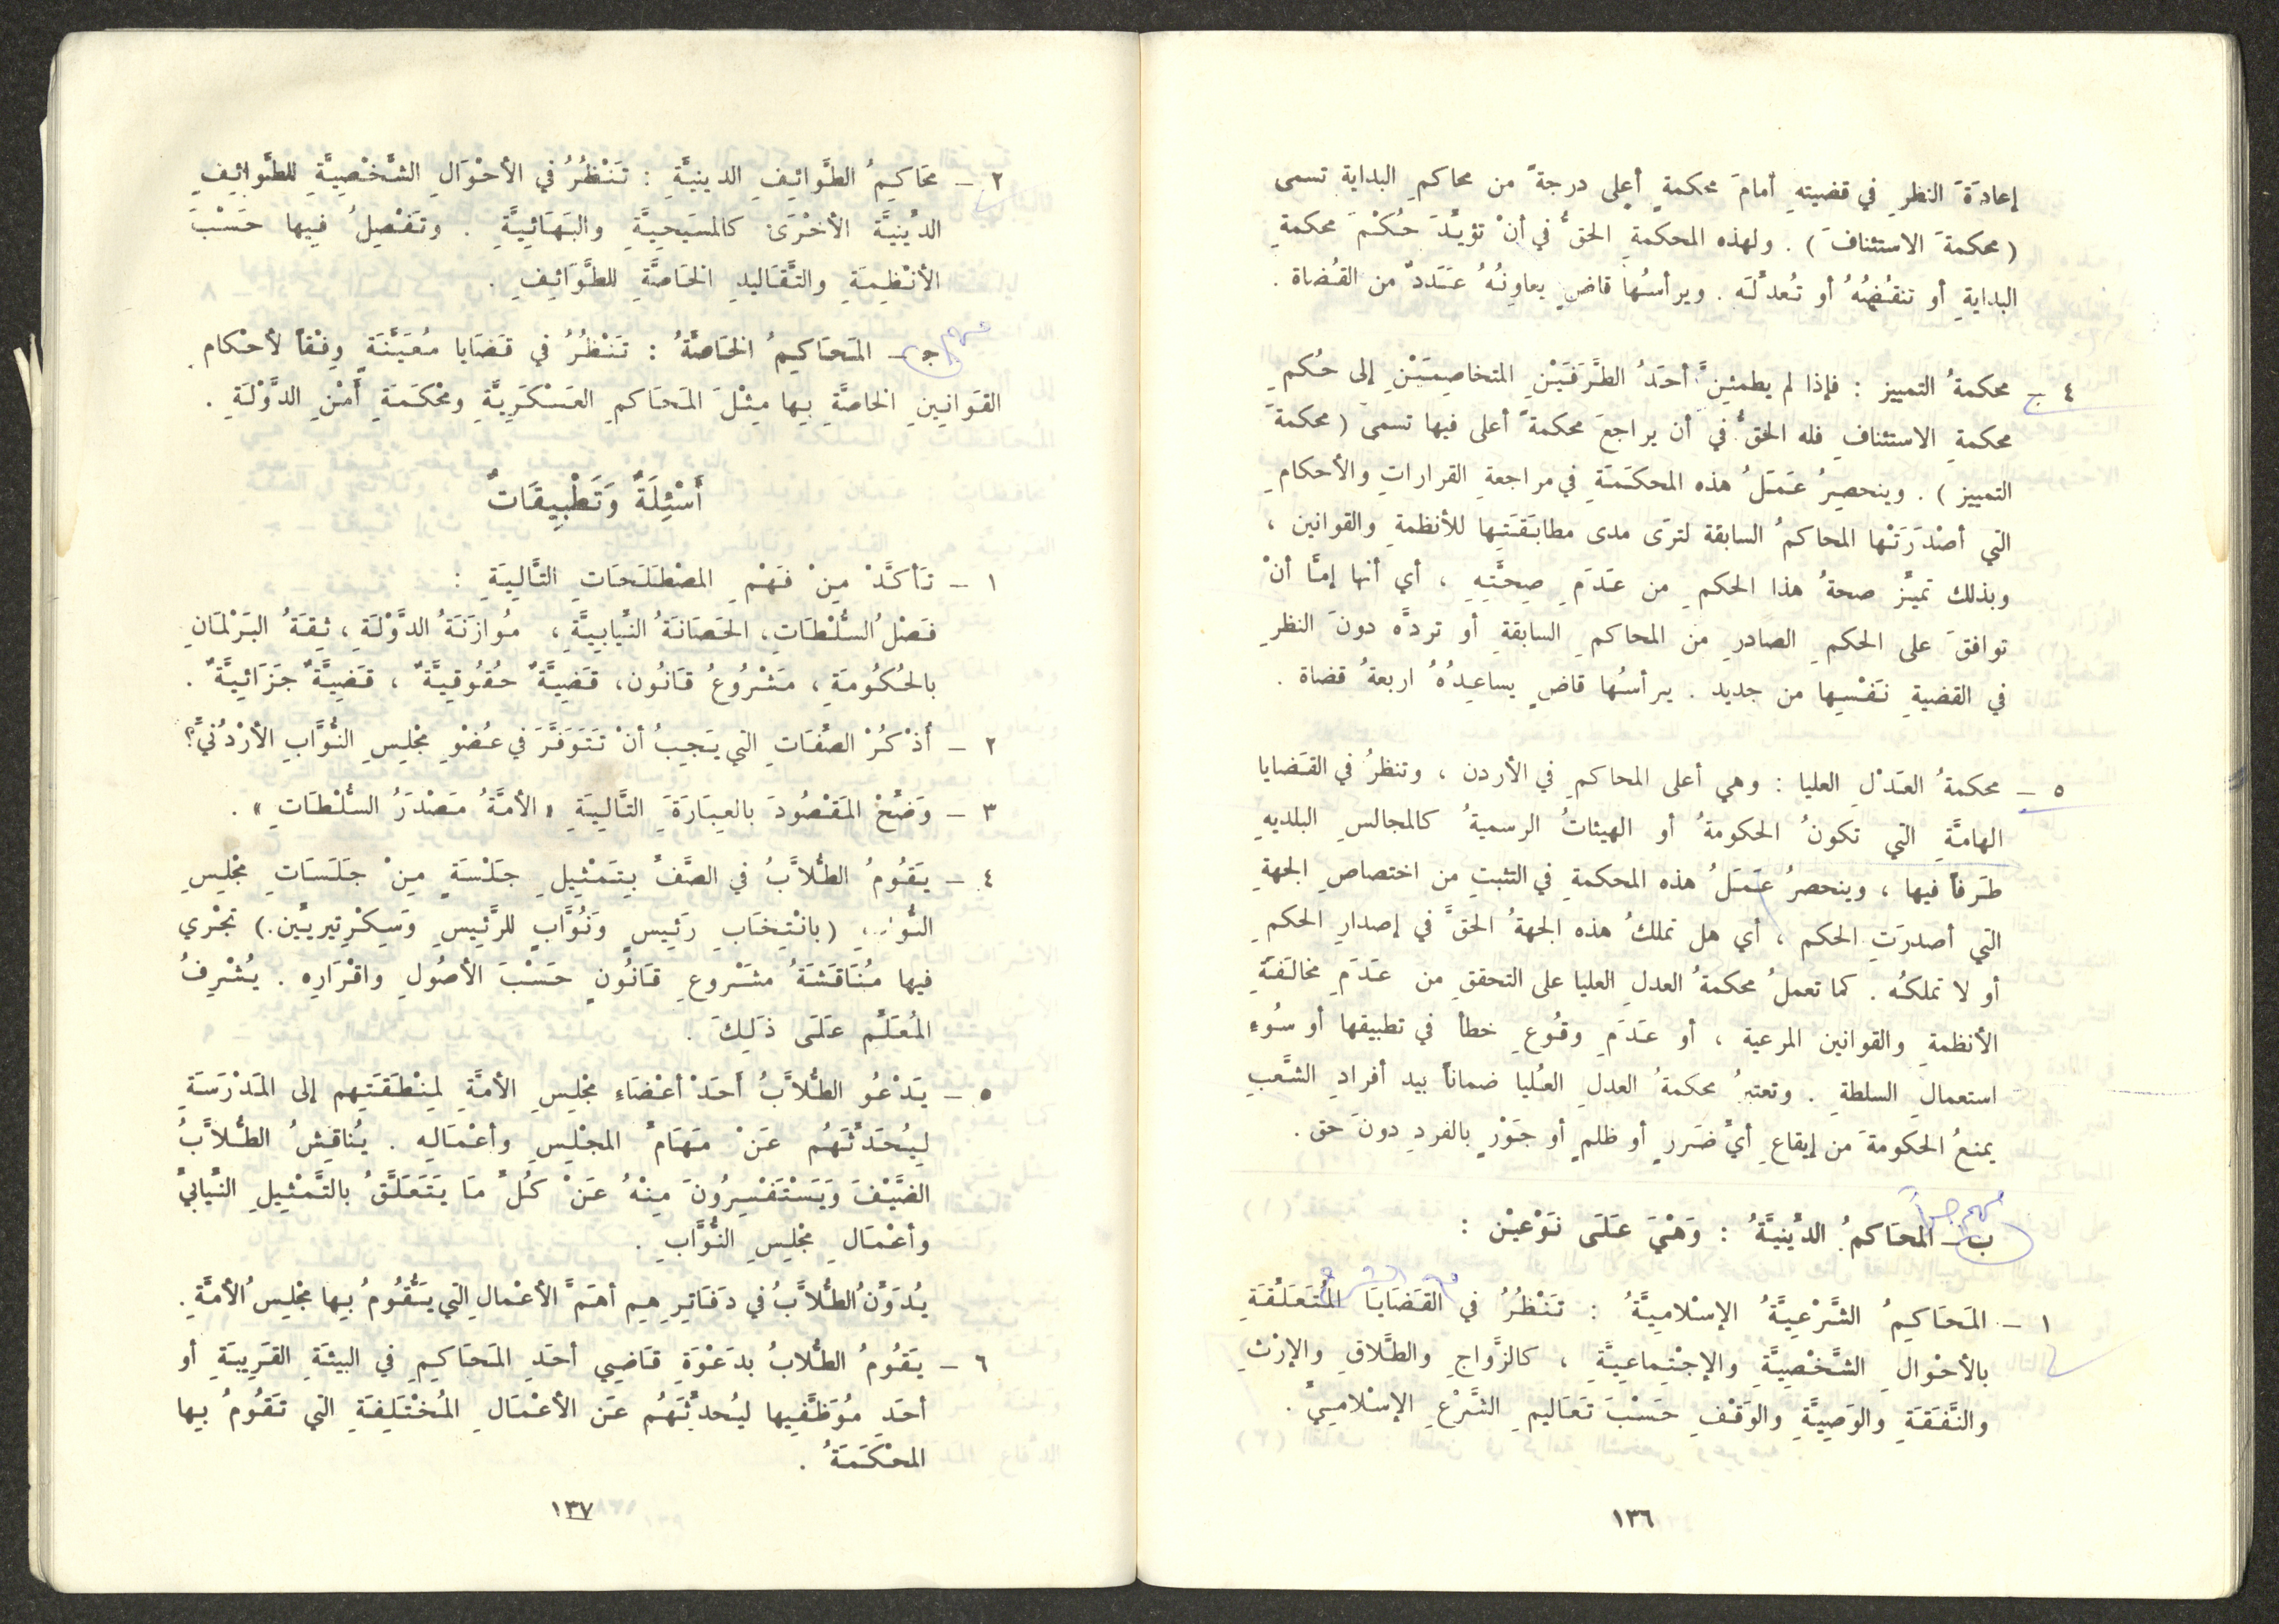 إعادَةَ النظرِ في قضيتهِ أمامَ محكمةٍ أعلى درجةً من محاكمِ البدايةِ تسمى
( محكمةَ الاستئنافَ ) . ولهذه المحكمةِ الحقُّ في أنْ تؤيِّدَ حُكْمَ محكمةِ
البدايةِ أو تنقُضهُ أو تُعدلَه . ويرأسُها قاضٍ يعاوِنُهُ عَدَدٌ من القُضاة .
٤ – محكمةُ التمييز : فإذا لم يطمئنَّ أحدُ الطَّرَفَيْنِ المتخاصِمَيْنِ إلى حُكمِ
محكمةِ الاستئنافِ فله الحقُّ في أن يراجعَ محكمةً أعلى فيها تسمى ( محكمةَ
التمييز ) . وينحصِرُ عَمَلُ هذه المحكَمَةِ في مراجعةِ القراراتِ والأحكامِ
التي أصْدَرَتْها المحاكمُ السابقة لترَى مدى مطابَقَتِها للأنظمةِ والقوانين ،
وبذلك تميِّز صحةُ هذا الحكمِ من عَدَمِ صِحَّتِهِ ، أي أنها إمَّا أنْ
توافقَ على الحكمِ الصادرِ من المحاكمِ السابقةِ أو تردَّه دونَ النظرِ
في القضيةِ نَفْسِها من جديد . يرأسُها قاضٍ يساعِدُهُ اربعةُ قضاة .
٥ – محكمةُ العَدْلِ العليا : وهي أعلى المحاكمِ في الأردن ، وتنظرُ في القَضايا
الهامَّةِ التي تكونُ الحكومةُ أو الهيئاتُ الرسميةُ كالمجالسِ البلديهِ
طَرفاً فيها ، وينحصرُ عَمَلُ هذه المحكمةِ في التثبتِ من اختصاصِ الجهةِ
التي أصدرَتِ الحكم ، أي هل تملكُ هذه الجهةُ الحقَّ في إصدارِ الحكمِ
أو لا تملكُه . كما تعملُ محكمةُ العدلِ العليا على التحققِ من عَدَمِ مخالَفَةِ
الأنظمةِ والقوانين المرعية ، أو عَدَمِ وقُوعِ خطأ في تطبيقها أو سُوءِ
استعمالِ السلطةِ . وتعتبرُ محكمةُ العدلِ العُليا ضماناً بيد أفرادِ الشَّعبِ
يمنعُ الحكومةَ من إيقاعِ أيِّ ضَررٍ أو ظلمٍ أو جَوْرٍ بالفردِ دونَ حق .
مهم جداً
ب – المحَاكمُ الدِّينيَّةُ : وَهْيَ عَلَى نَوْعيْن :
١ – المَحَاكِمُ الشَّرْعِيَّةُ الإسْلامِيَّةُ : تَنْظُرُ في القَضَايَا المُتَعَلِّقَةِ
بالأحْوالِ الشَّخْصِيَّةِ والإجْتِماعِيَّةِ ، كالزَّواجِ والطَّلاقِ والإرْثِ
والنَّفَقَةِ والوَصِيَّةِ والوَقْفِ حَسْبَ تَعَاليمِ الشَّرْعِ الإسْلاميِّ .
١٣٦
٢ – مَحَاكِمُ الطَّوائِفِ الدينيَّةِ : تَنْظُرُ في الأحْوَالِ الشَّخْصِيَّةِ للطَّوائِفِ
الدِّينيَّةَ الأخْرَىْ كالمسَيَحِيَّةِ والبَهَائِيَّةِ . وتَفْصِلُ فِيها حَسْبَ
الأنْظِمَةِ والتَّقَاليدِ الخَاصَّةِ للطَّوَائِفِ .
مهم
جـ – المَحَاكِمُ الخَاصَّةُ : تَنْظُرُ في قَضَايا مُعَيَّنَةٍ وِفْقاً لأحْكامِ
القَوَانِينِ الخاصَّةِ بِها مِثْلَ المَحَاكمِ العَسْكَرِيَّةِ ومحْكَمَةِ أَمْنِ الدَّوْلَةِ .
أَسْئِلَةٌ وَتَطْبِيقَاتٌ
١ – تَأكَّدْ مِنْ فَهْمِ المصْطَلَحَاتِ التَّالِيَةِ :
فَصْلُ السُّلْطَاتِ، الحَصَانَةُ النِّيابِيَّةِ ، مُوازَنَةُ الدَّوْلَةِ ، ثِقَةُ البَرْلمَانِ
بالحُكُومَةِ ، مَشْرُوعُ قَانُون، قَضِيَّةٌ حُقُوقِيَّةٌ ، قَضِيَّةٌ جَزَائِيَّةٌ .
٢ – أذْكُرْ الصِّفَاتِ التي يَجِبُ أنْ تَتَوَفَّرَ في عُضْوِ مجْلِسِ النُّوَّابِ الأرْدُنيِّ؟
٣ – وَضِّحْ المَقْصُودَ بالعِبَارَةَ التَّالِيَةِ « الأمَّةُ مَصْدَرُ السلْطَاتِ » .
٤ – يَقُومُ الطُّلاَّبُ في الصَّفِّ بِتَمْثِيلِ جَلْسَةٍ مِنْ جَلَسَاتِ مجْلِسِ
(بانْتِخَابِ رَئِيسٍ وَنُوَّابٍ للرَّئِيسِ وَسِكْرِتيريِّين.) تجْري
فيها مُنَاقَشَةُ مشْروعِ قَانُونٍ حَسْبَ الأصُولِ واقْرَارِه . يُشْرِفُ
المُعَلِّم عَلَى ذَلِكَ .
٥ – يَدْعُو الطُّلاَّبُ أَحَدْ أعْضَاءِ مجْلِسِ الأمَّةِ لمِنْطَقَتِهم إلى المَدْرَسَةِ
لِيُحَدِّثَهُم عَنْ مَهَامِّ المجْلِسِ وأعْمَالِه . يُناقِشُ الطُّلاَّبُ
الضَّيْفَ وَيَسْتَفْسِرُونَ مِنْهُ عَنْ كُلِّ مَا يَتَعَلَّقُ بالتَّمْثِيلِ النِّيابيِّ
وأعْمَالِ مجْلِسِ النُّوَّابِ .
يُدَوِّنُ الطُّلاَّبُ في دَفَاتِرِهِم أهَمَّ الأعْمالِ التي يَقُومُ بِها مجْلِسُ الأمَّةِ .
٦ – يَقُومُ الطُّلابُ بدَعْوَةِ قَاضِي أحَدِ المَحَاكِمِ في البيئَةِ القَرِيبَةِ أو
أحَدِ مُوَظَّفِيها ليُحدِّثَهُم عَن الأعْمَالِ المُخْتَلِفَةِ التي تَقُومُ بِها
المحْكَمَةُ .
١٣٧